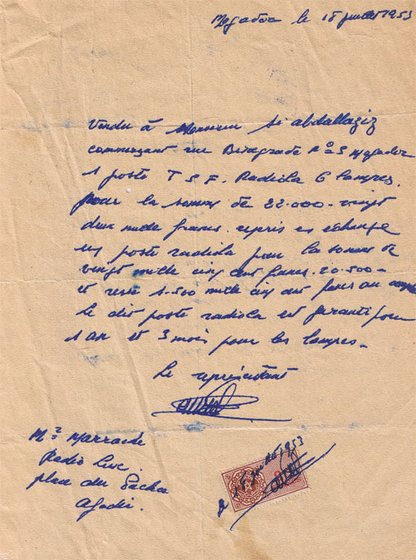 Mogador le 18 juillet 1953
Vendu à Monsieur Si abdallaziz
commerçant rue N° 3 Mogador
1 poste T S F. Radiola 6 lampes.
pour la somme de 22.000 - vingt
deux mille francs. repris en échange
un poste radiola pour la somme de
vingt mille cinq cent francs. 20.500 -
et reste 1.500 mille cinq cent francs au
Le dit poste radiola est garanti pour
1 an et 3 mois pour les lampes -
Le représentant
Radio Luc.
place du Pacha
Agadir.
juillet 1953